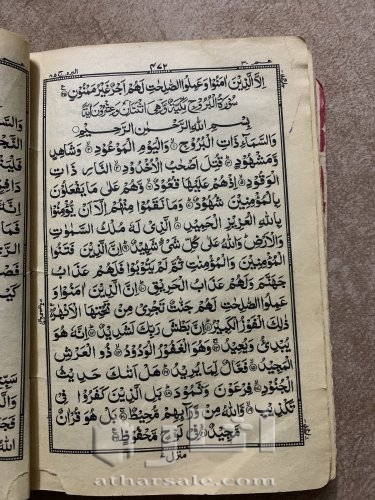 عم ٣٠
٤٧٢
اِلَّا الَّذِيْنَ اٰمَنُوْا وَعَمِلُوا الصّٰلِحٰتِ لَهُمْ اَجْرٌ غَيْرُ مَمْنُوْنٍ
سُوْرَةُ الْبُرُوْجِ مَكِّيَّةٌ وَّهِيَ اثْنَتَانِ وَعِشْرُوْنَ اٰيَةً
بِسْمِ اللّٰهِ الرَّحْمٰنِ الرَّحِيْمِ
وَالسَّمَآءِ ذَاتِ الْبُرُوْجِ وَالْيَوْمِ الْمَوْعُوْدِ وَشَاهِدٍ
وَّمَشْهُوْدٍ قُتِلَ اَصْحٰبُ الْاُخْدُوْدِ النَّارِ ذَاتِ
الْوَقُوْدِ اِذْهُمْ عَلَيْهَا قُعُوْدٌ وَّهُمْ عَلٰى مَا يَفْعَلُوْنَ
بِالْمُؤْمِنِيْنَ شُهُوْدٌ وَمَا نَقَمُوْا مِنْهُمْ اِلَّآ اَنْ يُّؤْمِنُوْا
بِاللّٰهِ الْعَزِيْزِ الْحَمِيْدِ الَّذِيْ لَهٗ مُلْكُ السَّمٰوٰتِ
وَالْاَرْضِ وَاللّٰهُ عَلٰى كُلِّ شَيْءٍ شَهِيْدٌ اِنَّ الَّذِيْنَ فَتَنُوا
الْمُؤْمِنِيْنَ وَالْمُؤْمِنٰتِ ثُمَّ لَمْ يَتُوْبُوْا فَلَهُمْ عَذَابُ
جَهَنَّمَ وَلَهُمْ عَذَابُ الْحَرِيْقِ اِنَّ الَّذِيْنَ اٰمَنُوْا وَ
عَمِلُوا الصّٰلِحٰتِ لَهُمْ جَنّٰتٌ تَجْرِيْ مِنْ تَحْتِهَا الْاَنْهٰرُ
ذٰلِكَ الْفَوْزُ الْكَبِيْرُ اِنَّ بَطْشَ رَبِّكَ لَشَدِيْدٌ اِنَّهٗ هُوَ
يُبْدِئُ وَيُعِيْدُ وَهُوَ الْغَفُوْرُ الْوَدُوْدُ ذُو الْعَرْشِ
الْمَجِيْدُ فَعَّالٌ لِّمَا يُرِيْدُ هَلْ اَتٰىكَ حَدِيْثُ
الْجُنُوْدِ فِرْعَوْنَ وَثَمُوْدَ بَلِ الَّذِيْنَ كَفَرُوْا فِيْ
تَكْذِيْبٍ وَّاللّٰهُ مِنْ وَّرَآئِهِمْ مُّحِيْطٌ بَلْ هُوَ قُرْاٰنٌ
مَّجِيْدٌ فِيْ لَوْحٍ مَّحْفُوْظٍ
منزل
atharsale.com